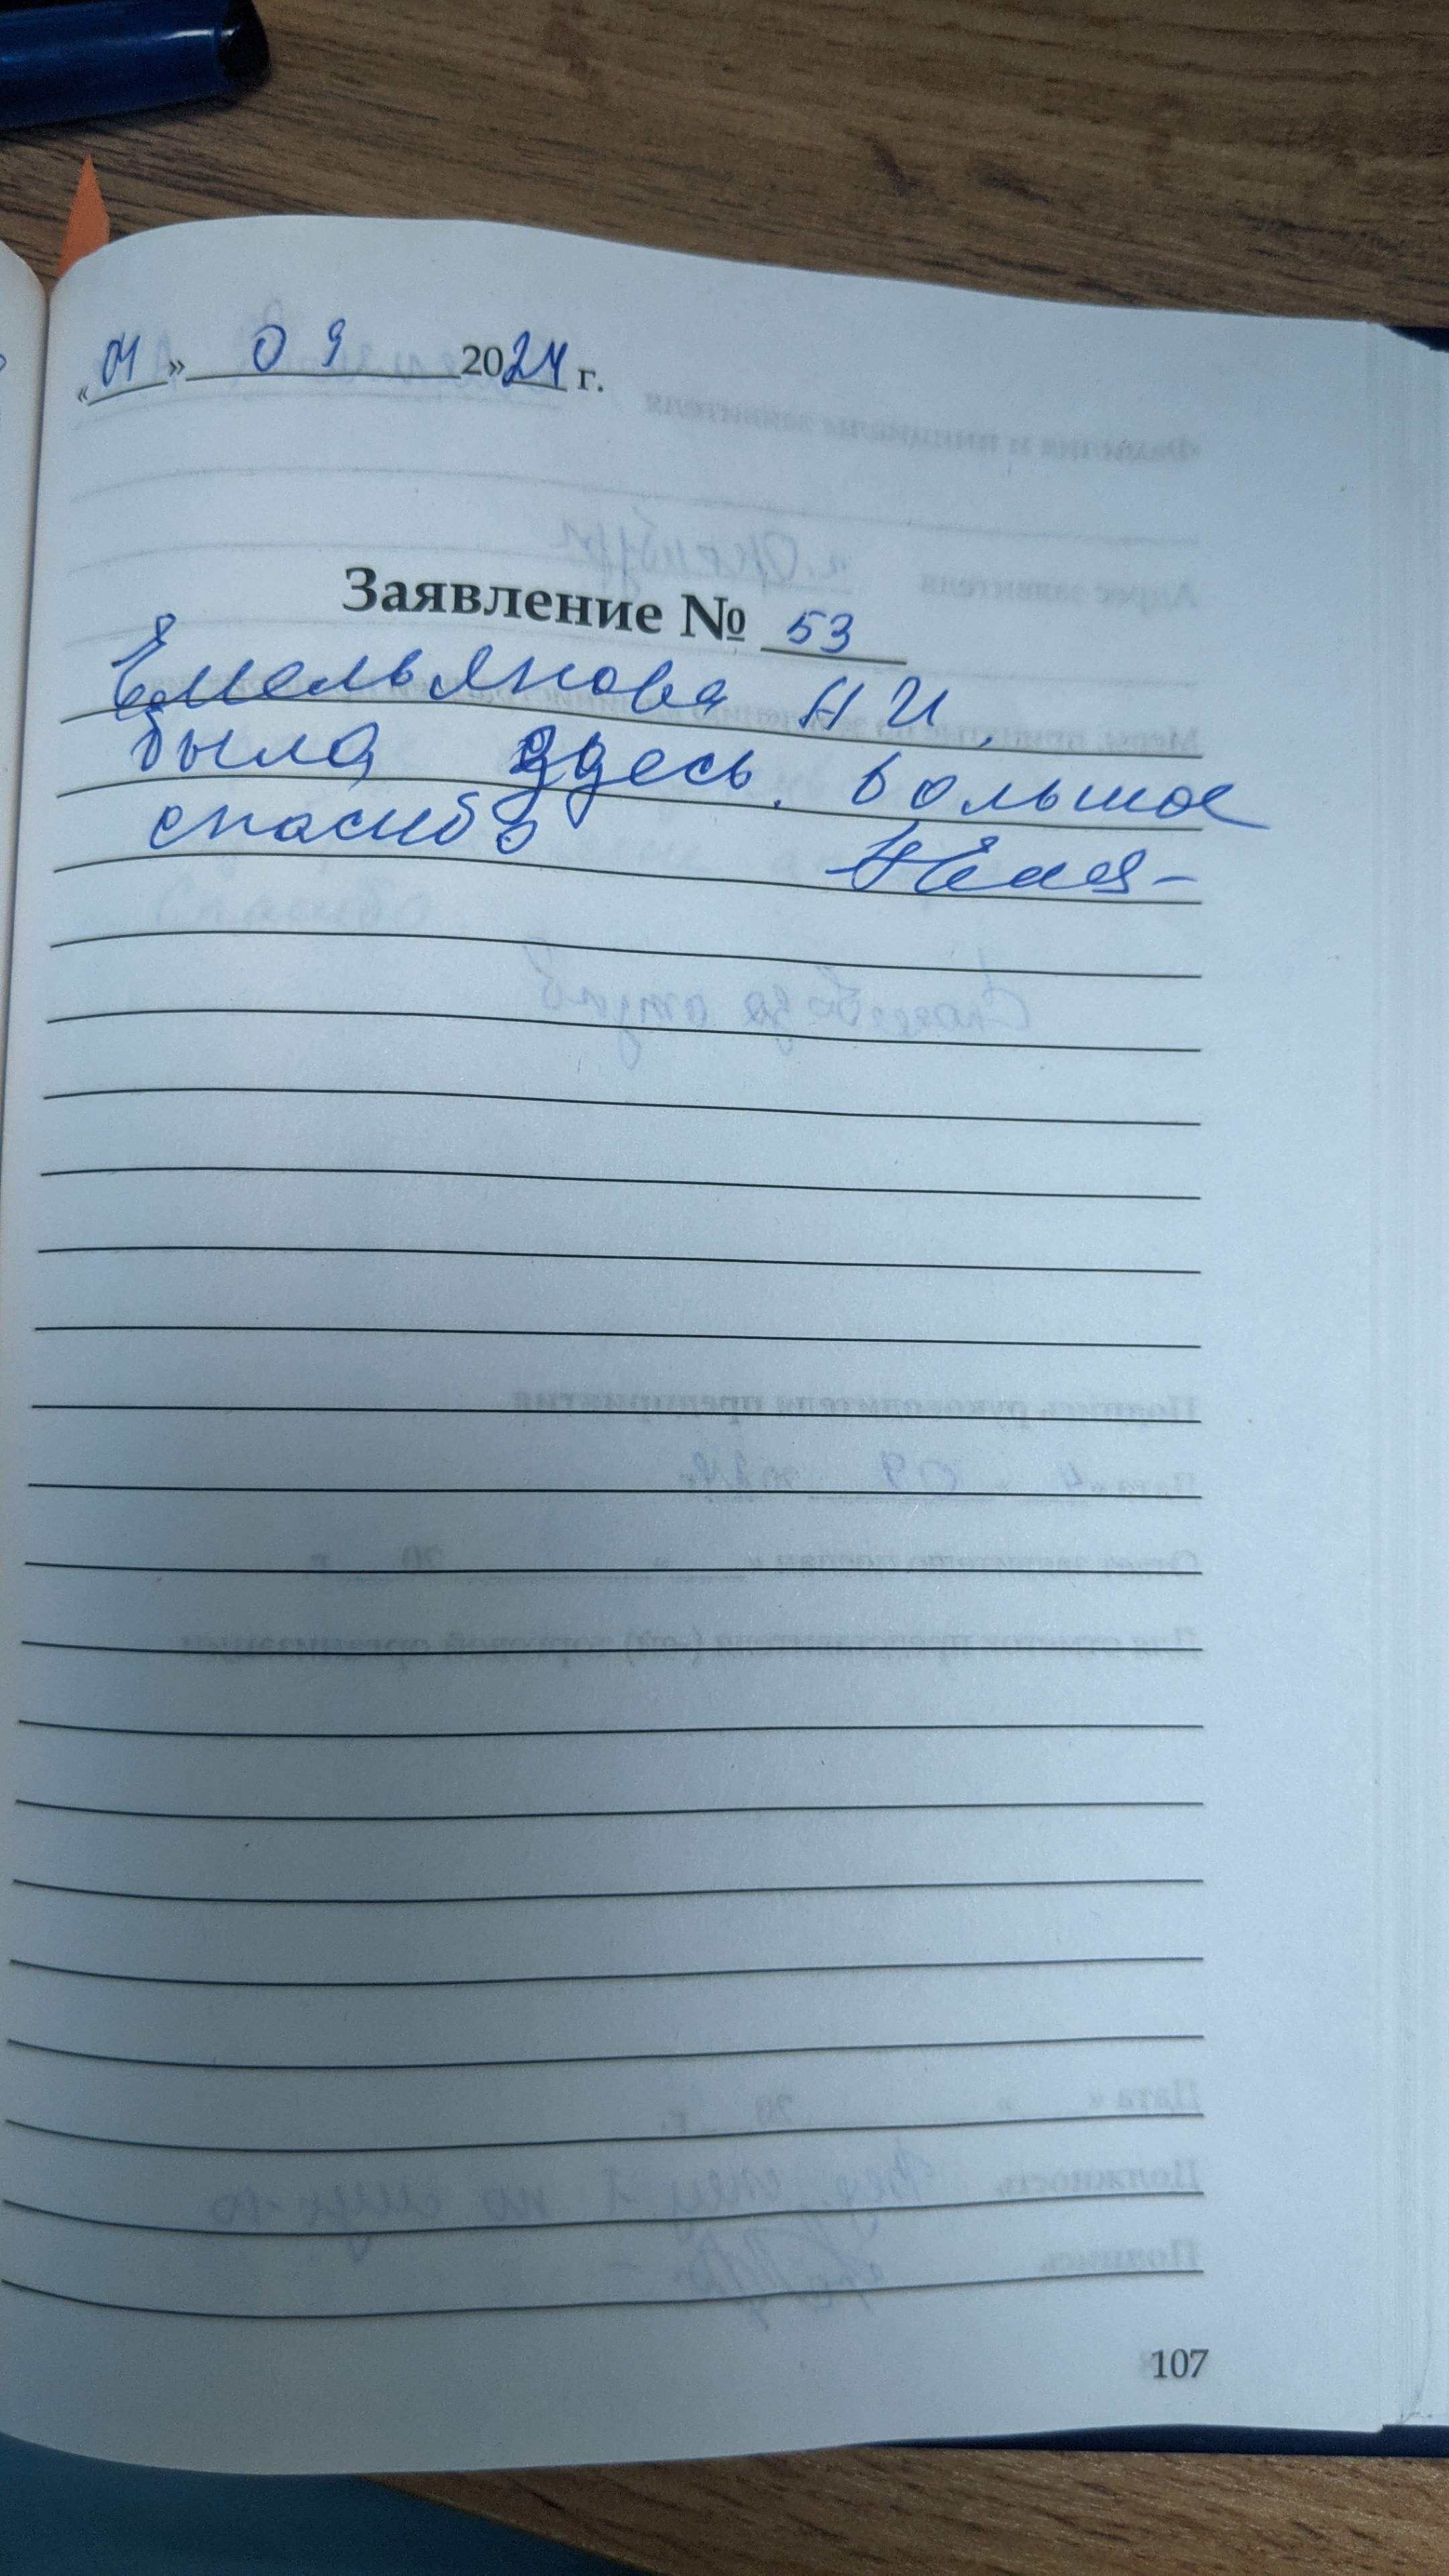 «04» 09 2024 г.
Заявление № 53
Емельянова Н И,
была здесь. Большое
спасибо
107